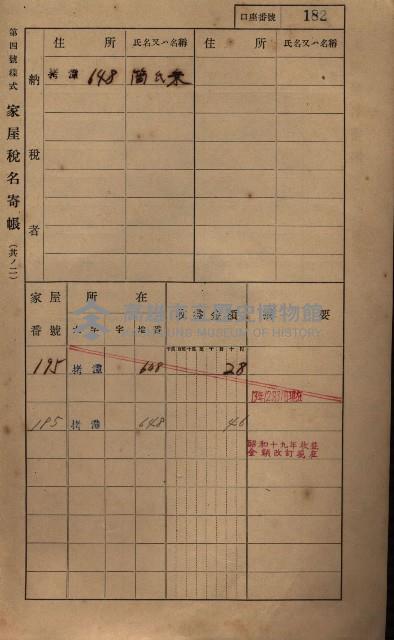 口座番號 182
第四號樣式 家屋稅名寄帳 (其ノ二)
納稅者
住所 氏名又ハ名稱 住所 氏名又ハ名稱
拷潭 648 簡氏
家屋番號 所在 收益金額 摘要
大字 字 地番
195 拷潭 648 28
195 拷潭 648 46
昭和十九年收益
金額改訂現在
高雄市立歷史博物館
KAOHSIUNG MUSEUM OF HISTORY